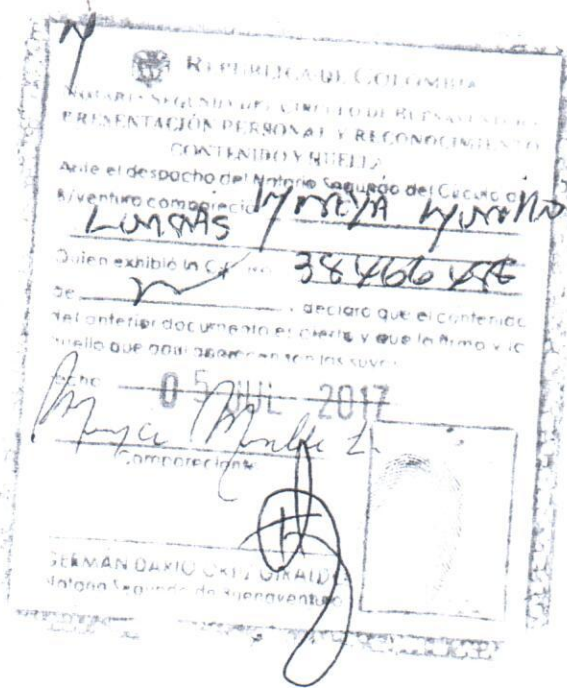 REPUBLICA DE COLOMBIA
NOTARIA SEGUNDA DEL CIRCULO DE BUENAVENTURA
PRESENTACIÓN PERSONAL Y RECONOCIMIENTO
CONTENIDO Y HUELLA
Ante el despacho del Notario Segundo del Circulo de
B/ventura compareció
Quien exhibió la C.C. No. 38466
de , declaró que el contenido
del anterior documento es cierto y que la firma y la
huella que aqui aparecen son las suyas
Fecha 05 JUL 2017
Compareciente
GERMAN DARIO
Notario Segundo de Buenaventura